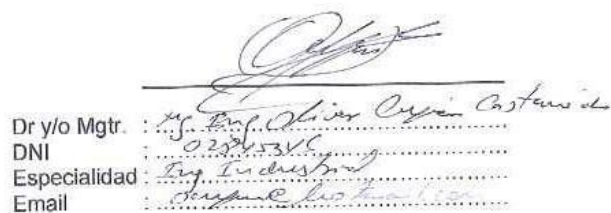 Dr y/o Mgtr. : Mg. Ing Oliver Cupén Castañeda
DNI : 02845346
Especialidad : Ing Industrial
Email :